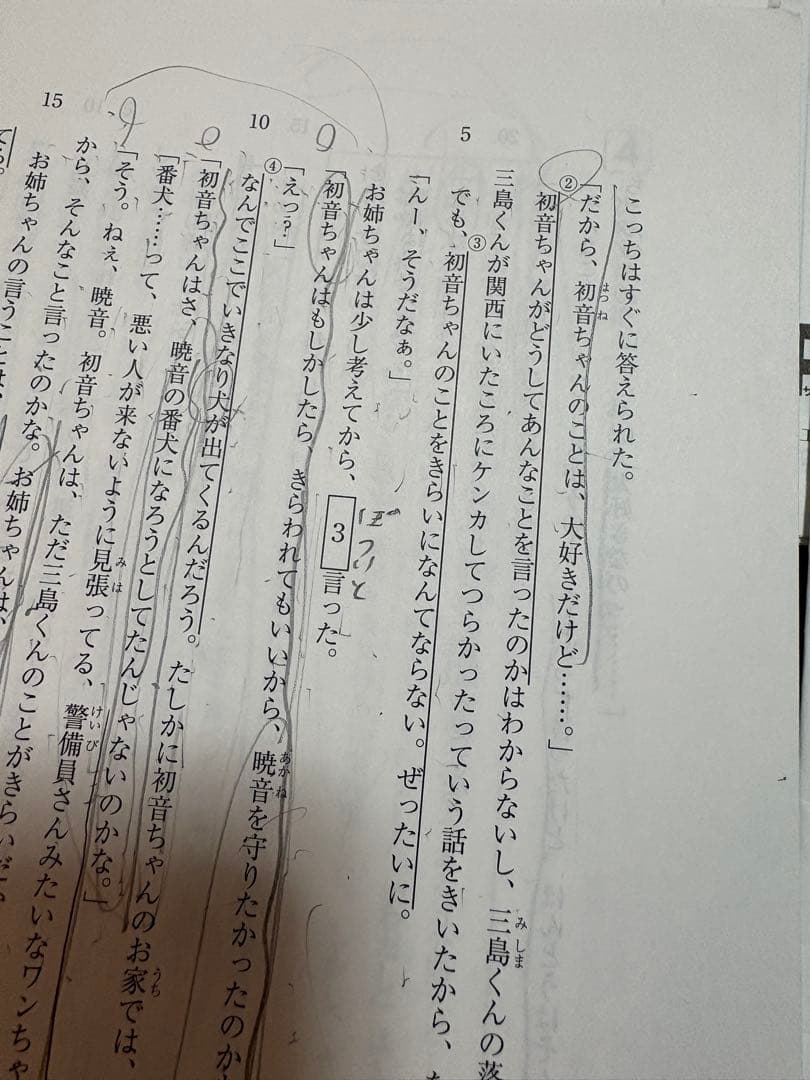 こっちはすぐに答えられた。
②「だから、初音ちゃんのことは、大好きだけど……。」
はつね
初音ちゃんがどうしてあんなことを言ったのかはわからないし、三島くんの落
みしま
三島くんが関西にいたころにケンカしてつらかったっていう話をきいたから、
5
でも、③初音ちゃんのことをきらいになんてならない。ぜったいに。
「んー、そうだなぁ。」
お姉ちゃんは少し考えてから、3言った。
ぽつりと
「初音ちゃんはもしかしたら、きらわれてもいいから、暁音を守りたかったのか
あかね
④「えっ？」
10
なんでここでいきなり犬が出てくるんだろう。たしかに初音ちゃんのお家では、
うち
「初音ちゃんはさ、暁音の番犬になろうとしてたんじゃないのかな。」
「番犬……って、悪い人が来ないように見張ってる、警備員さんみたいなワンちゃ
みは
けいび
「そう。ねぇ、暁音。初音ちゃんは、ただ三島くんのことがきらいだ
から、そんなこと言ったのかな。お姉ちゃんは、
15
お姉ちゃんの言うことは、